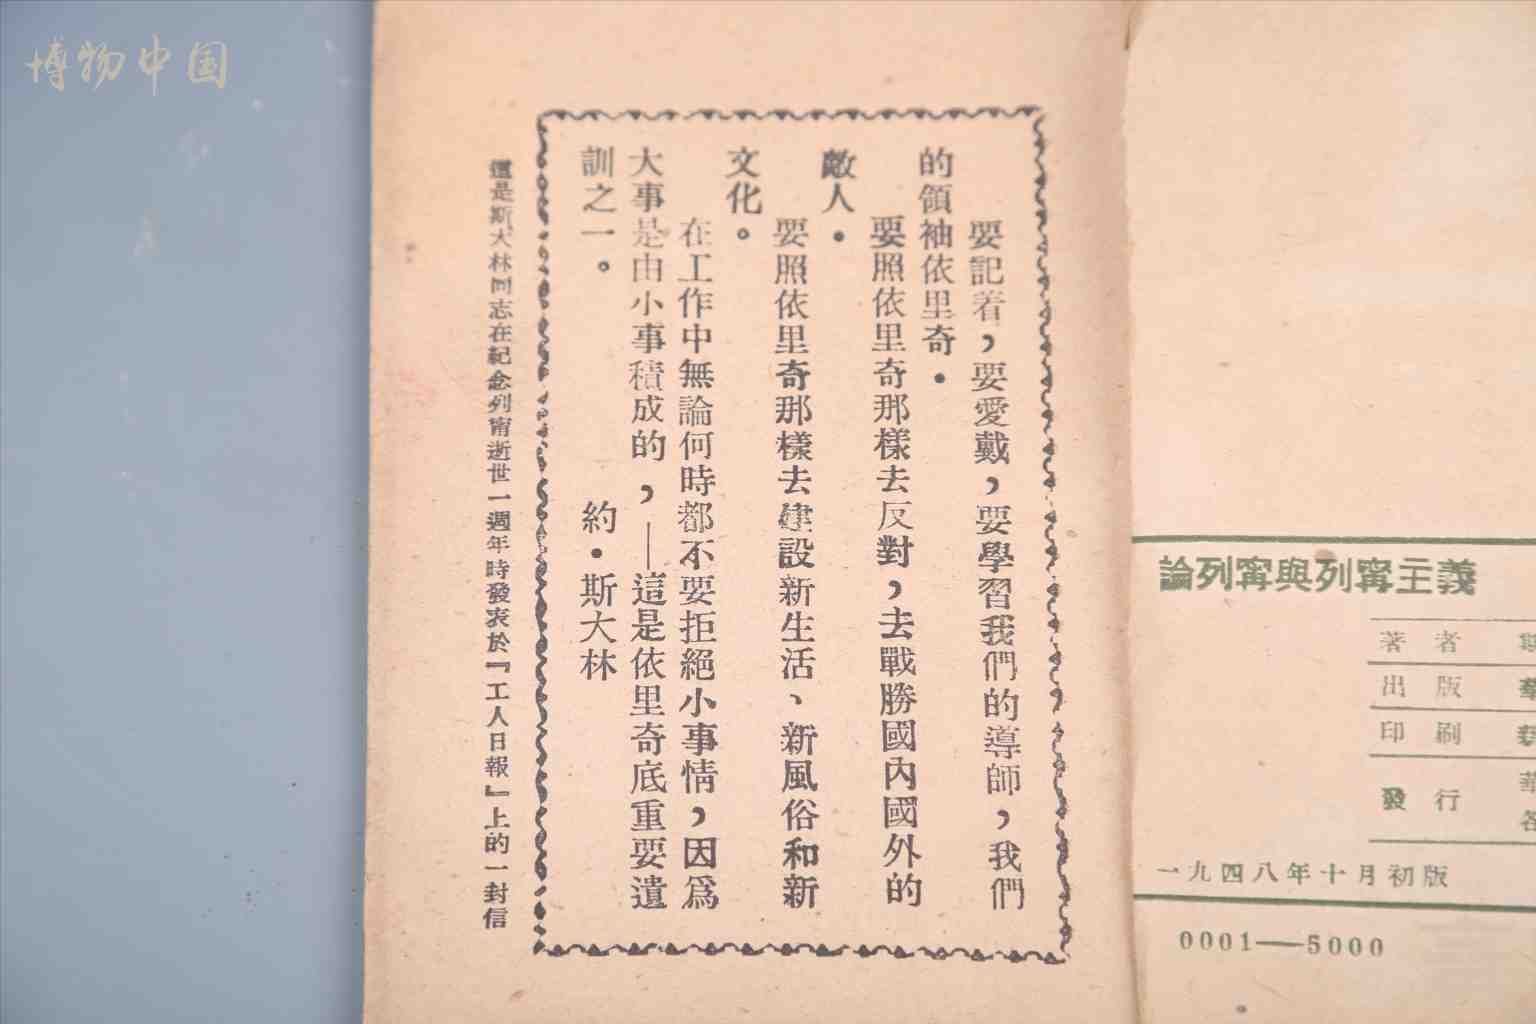 博物中国
要記着，要愛戴，要學習我們的導師，我們
的領袖依里奇．
要照依里奇那樣去反對，去戰勝國內國外的
敵人．
要照依里奇那樣去建設新生活、新風俗和新
文化。
在工作中無論何時都不要拒絕小事情，因爲
大事是由小事積成的，—這是依里奇底重要遺
訓之一。
約．斯大林
這是斯大林同志在紀念列甯逝世一週年時發表於『工人日報』上的一封信
論列甯與列甯主義
著 者
出 版
印 刷
發 行
一九四八年十月初版
0001—5000